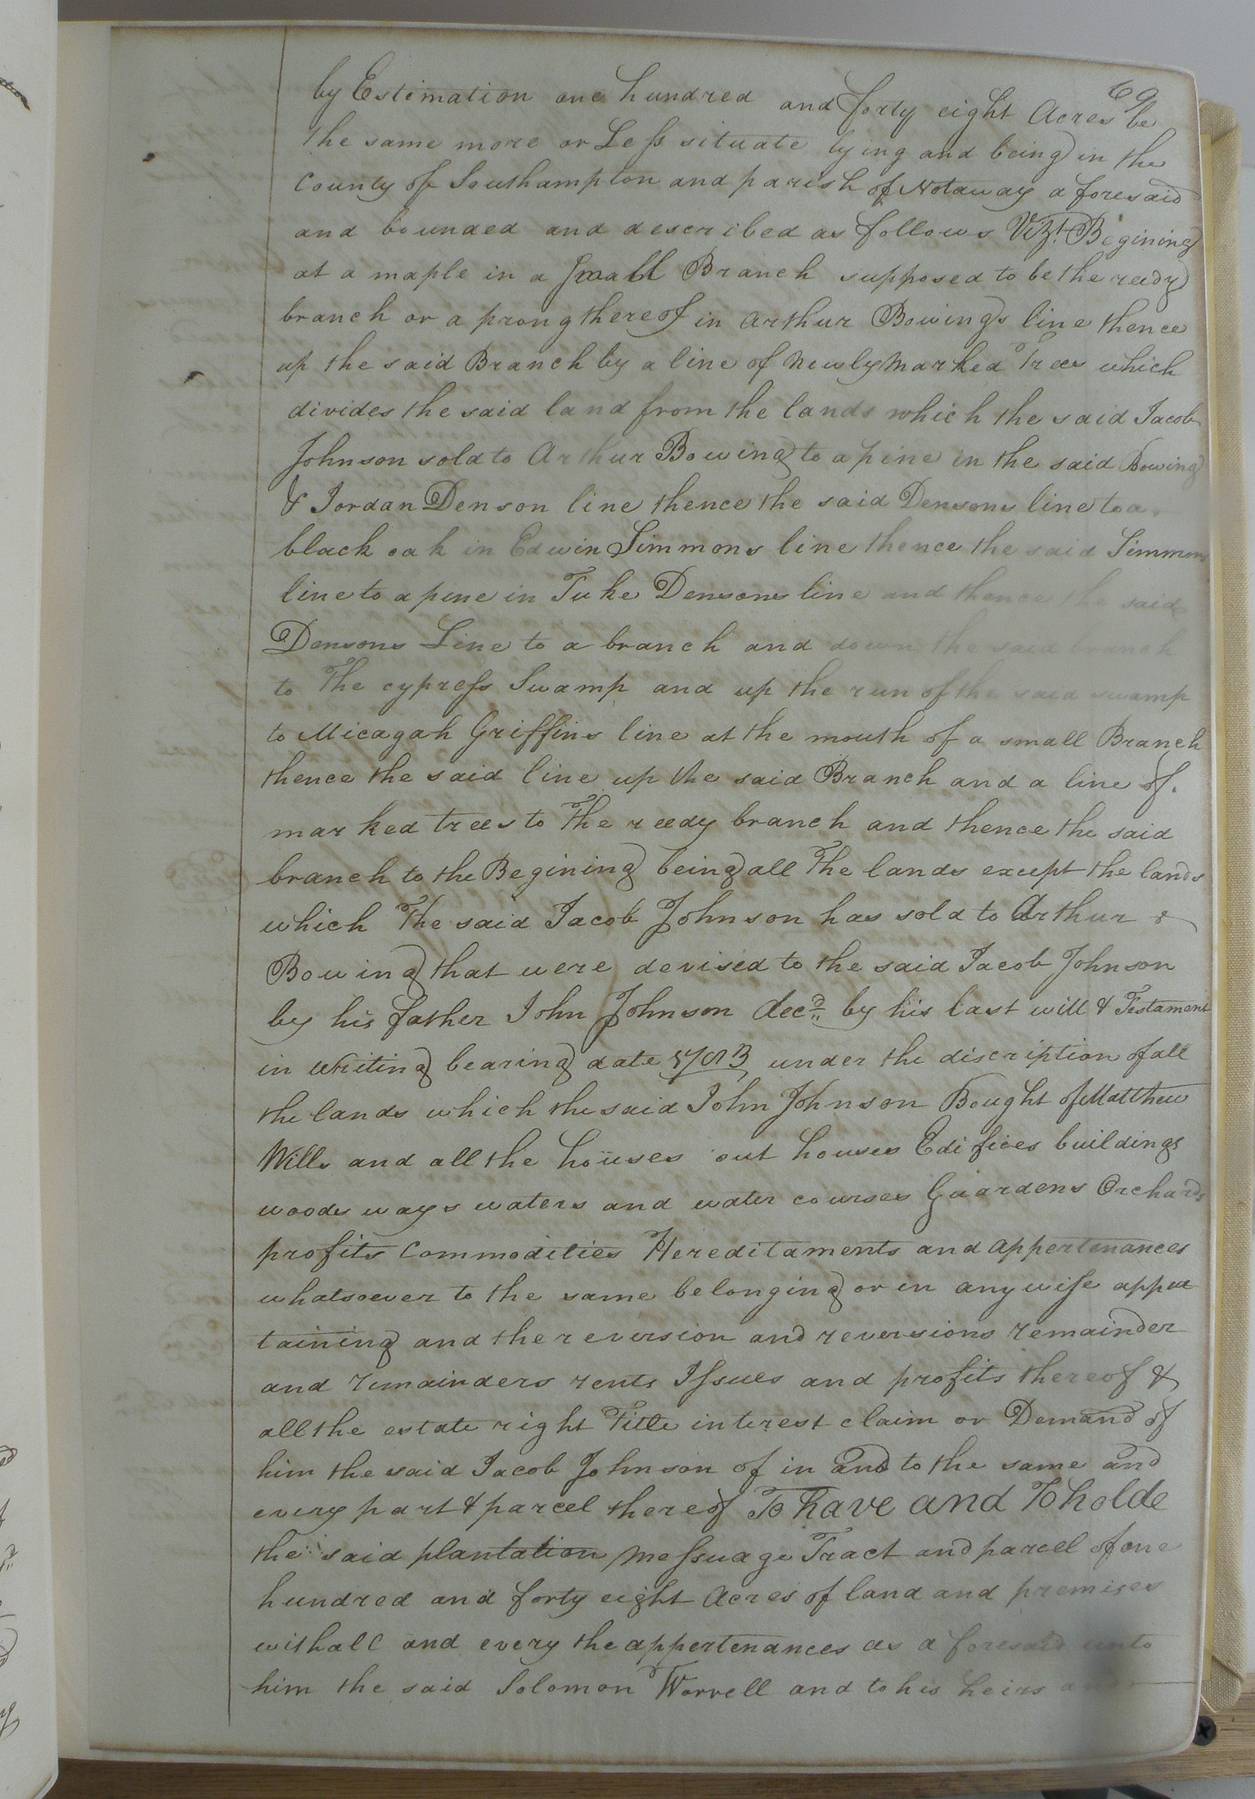 69
by Estimation one hundred and forty eight Acres be
the same more or Less situate lying and being in the
County of Southampton and parish of Notaway a foresaid
and bounded and described as follows Vizt. Begining
at a maple in a Small Branch supposed to be the reedy
branch or a prong thereof in Arthur Bowings line thence
up the said Branch by a line of Newly Marked Trees which
divides the said land from the lands which the said Jacob
Johnson sold to Arthur Bowing to a pine in the said Bowing
& Jordan Denson line thence the said Densons line to a
black oak in Edwin Simmons line thence the said Simmons
line to a pine in Tuke Densons line and thence the said
Densons Line to a branch and down the said branch
to The cypress Swamp and up the run of the said swamp
to Micagah Griffins line at the mouth of a small Branch
thence the said line up the said Branch and a line of
marked trees to The reedy branch and thence the said
branch to the Begining being all The lands except the lands
which The said Jacob Johnson has sold to Arthur
Bowing that were devised to the said Jacob Johnson
by his father John Johnson decd. by his last will & Testament
in Writing bearing date under the discription of all
the lands which the said John Johnson Bought of Matthew
Wills and all the houses out houses Edifices buildings
woods ways waters and water courses Guardens Orchards
profits Commodities Hereditaments and appertenances
whatsoever to the same belonging or in any wise apper
taining and the reversion and reversions remainder
and remainders rents Issues and profits thereof &
all the estate right Title interest claim or Demand of
him the said Jacob Johnson of in and to the same and
every part & parcel thereof To have and To holde
the said plantation Messuage Tract and parcel of one
hundred and forty eight Acres of land and premises
withall and every the appertenances as a foresaid unto
him the said Solomon Worrell and to his heirs and